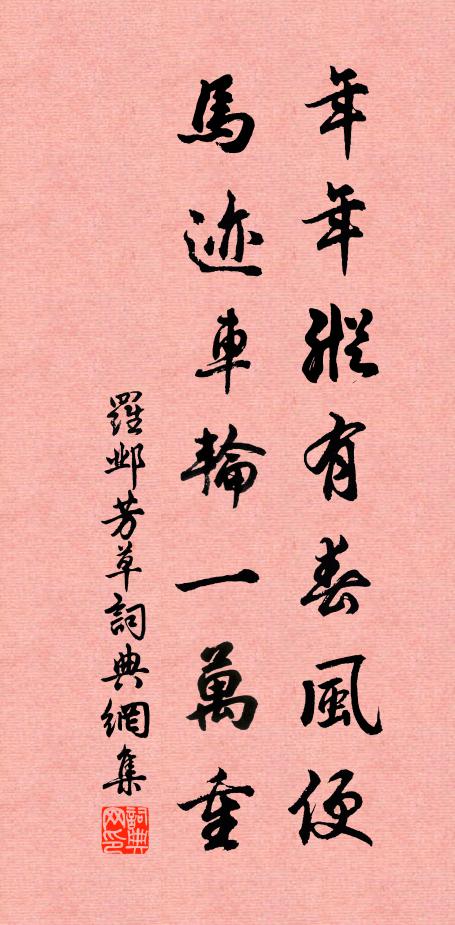 年年縱有春風便
馬迹車輪一萬重
羅鄴芳草詞典網集
詞典网印